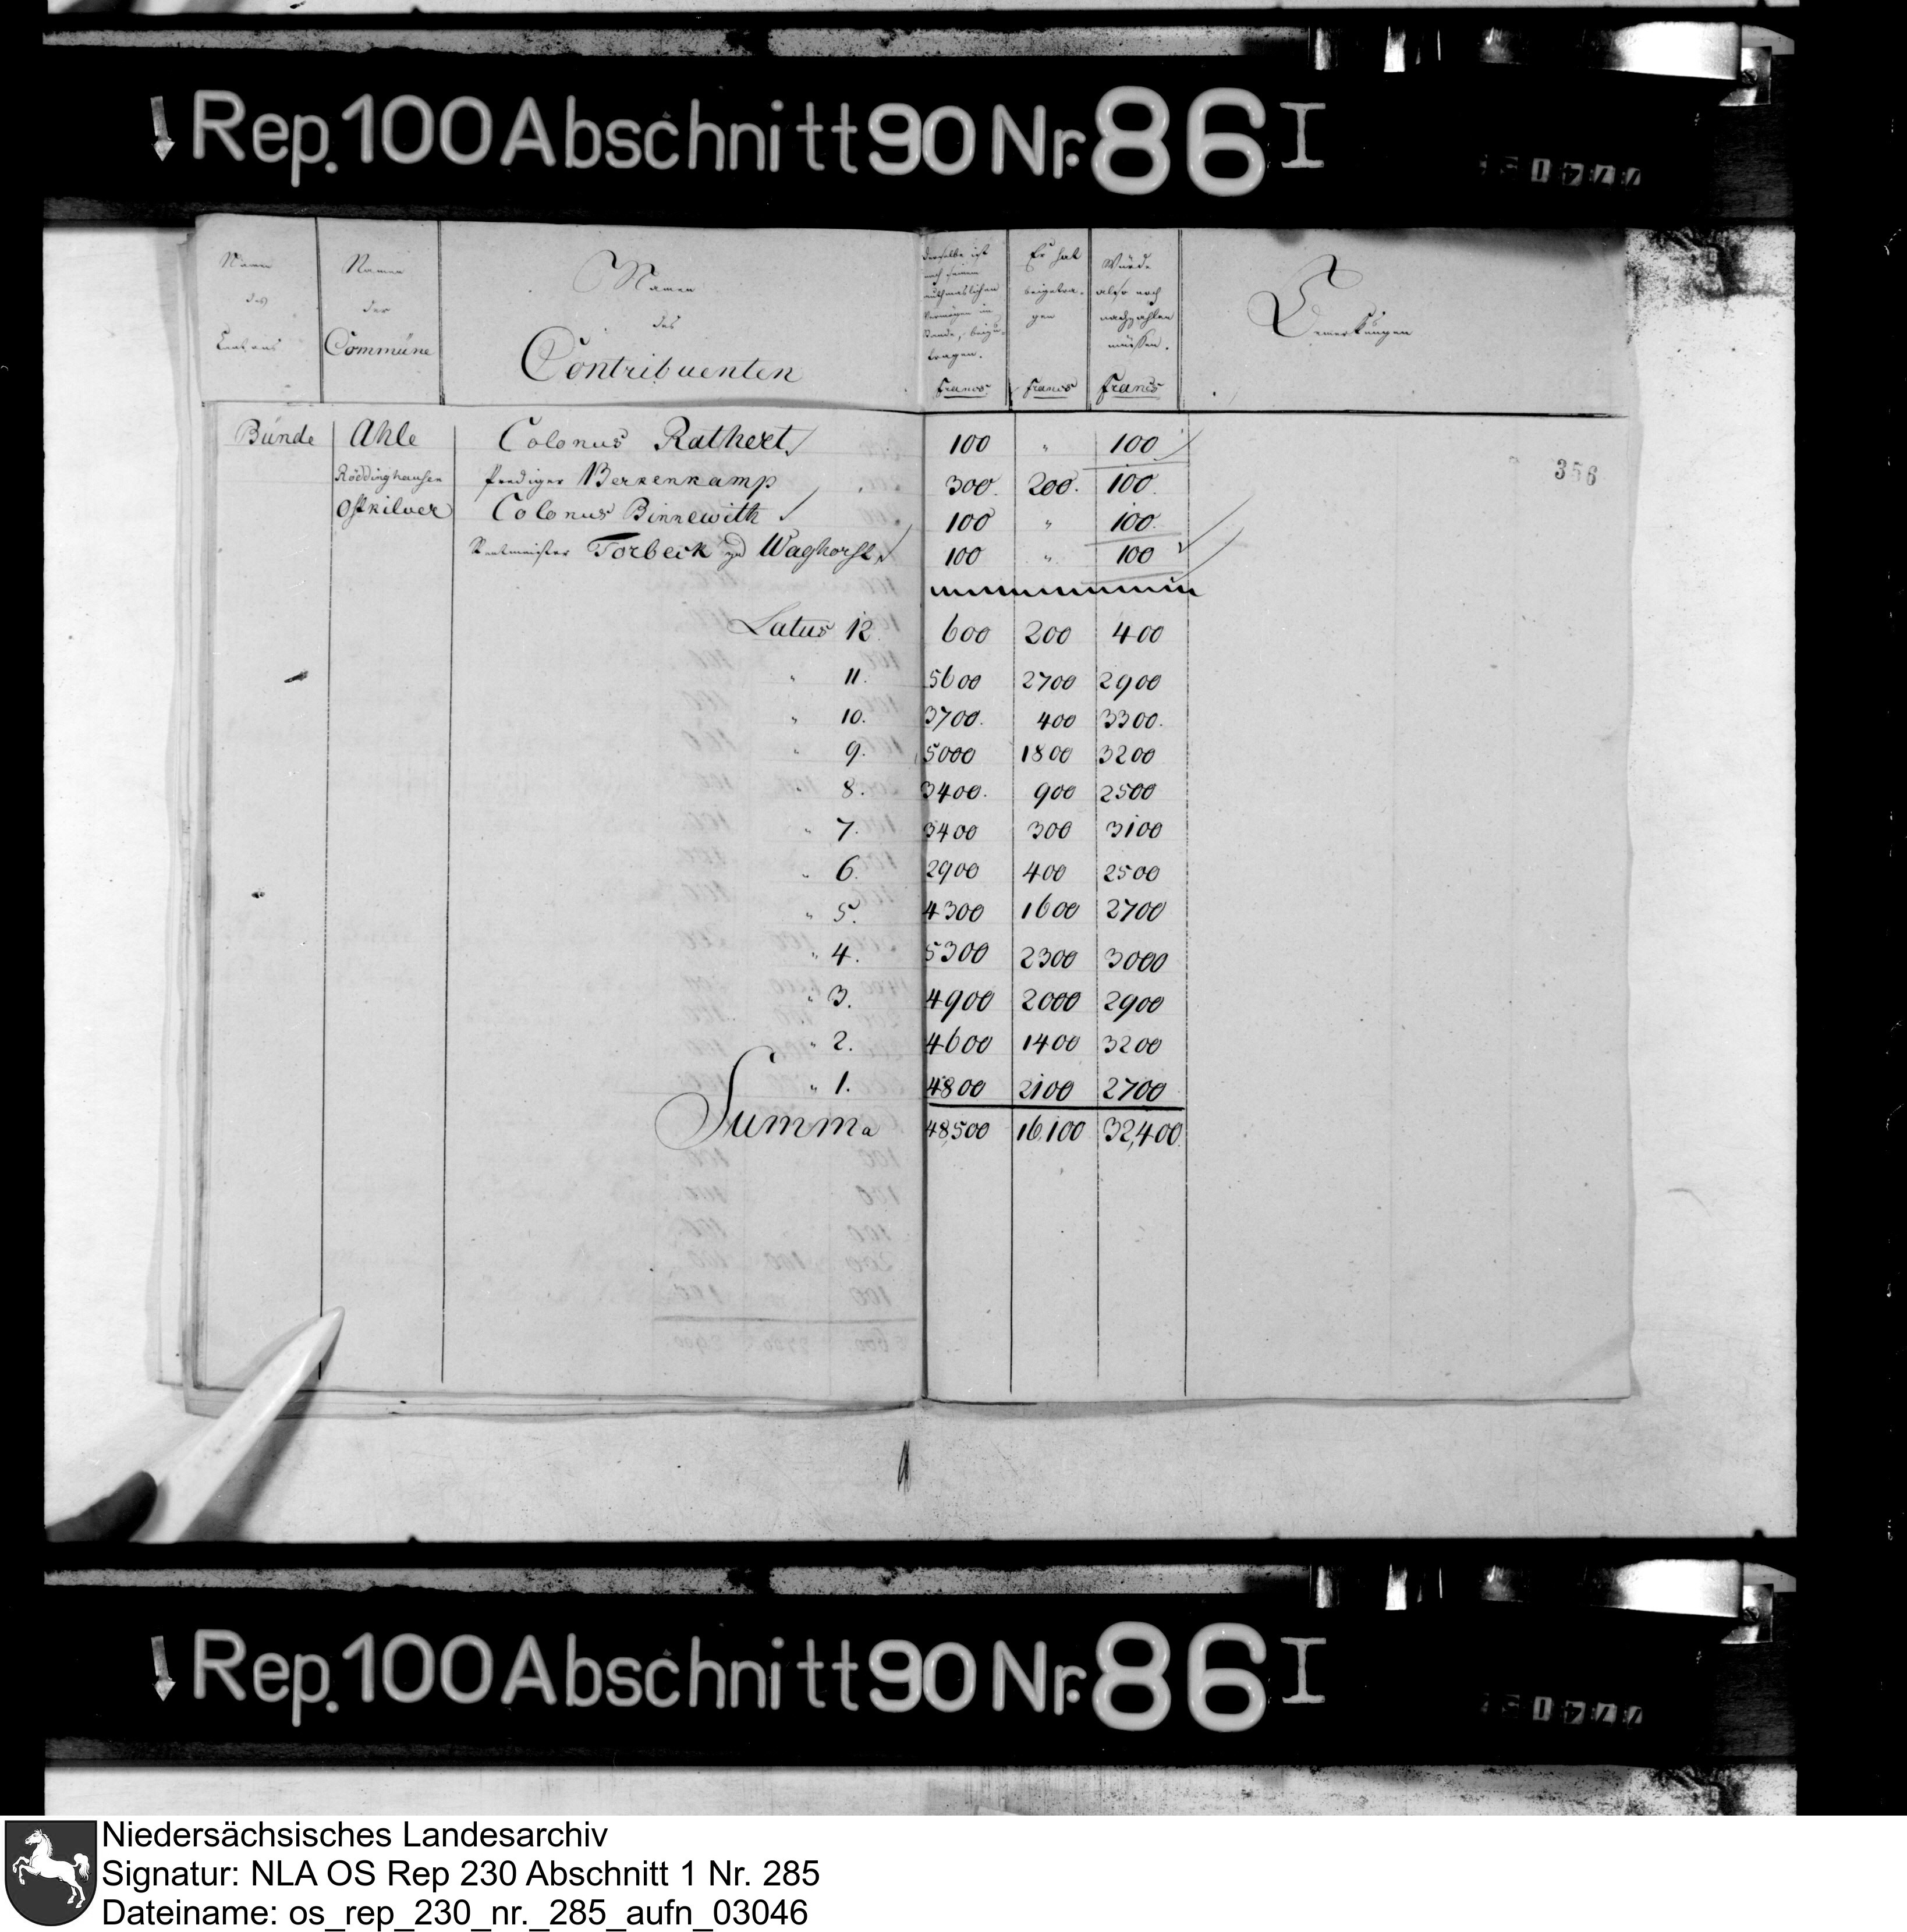 Rep. 100 Abschnitt 90 Nr. 86 I
Namen des Cantons
Namen der Commüne
Namen des Contribuenten
Derselbe ist nach seinem muthmaslichen Vermögen im Stande, beizutragen. Francs
Er hat beigetragen Francs
Würde also noch nachzahlen müssen. Francs
Bemerkungen
Bünde Ahle Colonus Rathert 100 " 100
356
Röddinghausen Prediger Berkenkamp 300. 200. 100.
Ostkilver Colonus Binnewith 100 " 100.
Rentmeister Torbeck zu Waghorst 100 " 100
Latus 12. 600 200 400
" 11. 5600 2700 2900
" 10. 3700. 400 3300.
" 9. 5000 1800 3200
" 8. 3400. 900 2500
" 7. 3400 300 3100
" 6. 2900 400 2500
" 5. 4300 1600 2700
" 4. 5300 2300 3000
" 3. 4900 2000 2900
" 2. 4600 1400 3200
" 1. 4800 2100 2700
Summa 48,500 16,100 32,400.
Rep. 100 Abschnitt 90 Nr. 86 I
Niedersächsisches Landesarchiv
Signatur: NLA OS Rep 230 Abschnitt 1 Nr. 285
Dateiname: os_rep_230_nr._285_aufn_03046